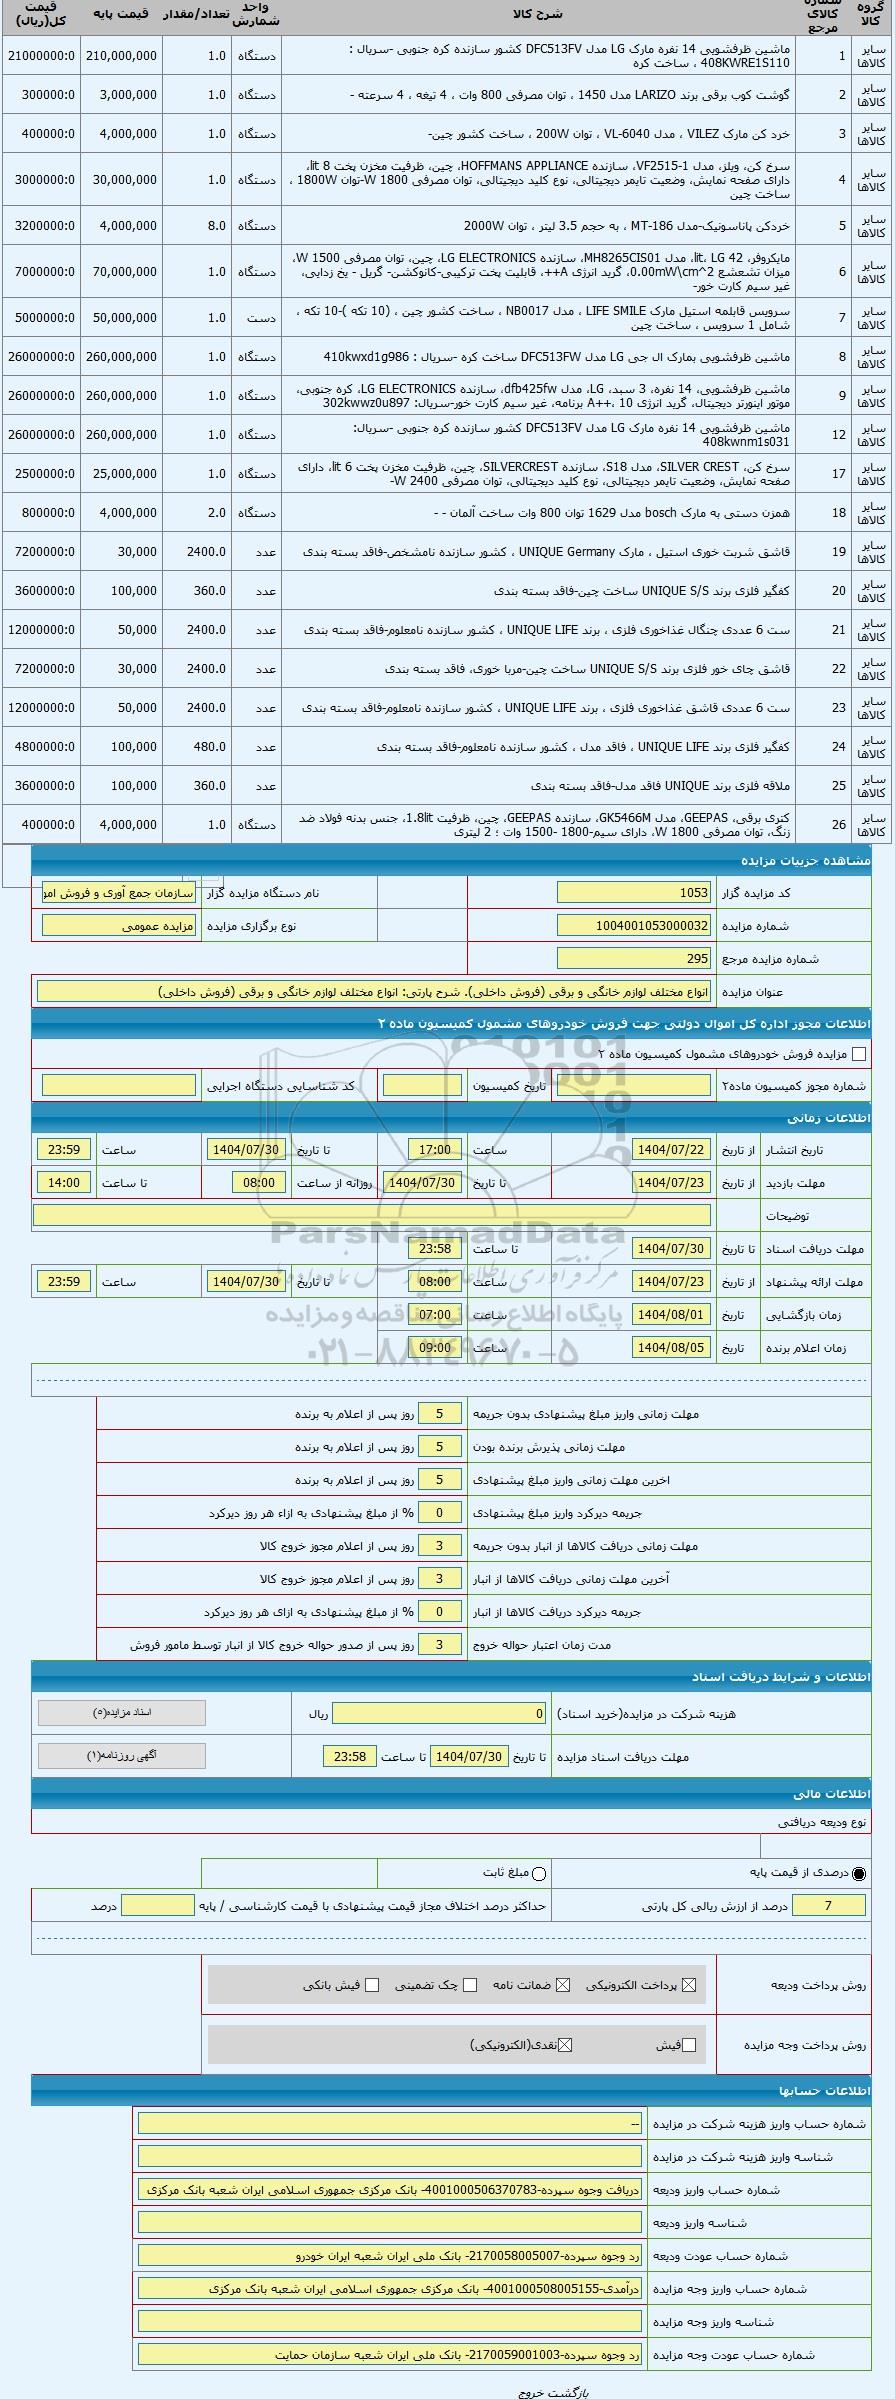 گروه کالا | شماره کالای مرجع | شرح کالا | واحد شمارش | تعداد/مقدار | قیمت پایه | قیمت کل(ریال)
سایر کالاها | 1 | ماشین ظرفشویی 14 نفره مارک LG مدل DFC513FV کشور سازنده کره جنوبی -سریال : 408KWRE1S110 ، ساخت کره | دستگاه | 1.0 | 210,000,000 | 21000000:0
سایر کالاها | 2 | گوشت کوب برقی برند LARIZO مدل 1450 ، توان مصرفی 800 وات ، 4 تیغه ، 4 سرعته - | دستگاه | 1.0 | 3,000,000 | 300000:0
سایر کالاها | 3 | خرد کن مارک VILEZ ، مدل VL-6040 ، توان 200W ، ساخت کشور چین- | دستگاه | 1.0 | 4,000,000 | 400000:0
سایر کالاها | 4 | سرخ کن، ویلز، مدل VF2515-1، سازنده HOFFMANS APPLIANCE، چین، ظرفیت مخزن پخت 8 lit، دارای صفحه نمایش، وضعیت تایمر دیجیتالی، نوع کلید دیجیتالی، توان مصرفی 1800 W-توان 1800W ، ساخت چین | دستگاه | 1.0 | 30,000,000 | 3000000:0
سایر کالاها | 5 | خردکن پاناسونیک-مدل MT-186 ، به حجم 3.5 لیتر ، توان 2000W | دستگاه | 8.0 | 4,000,000 | 3200000:0
سایر کالاها | 6 | مایکروفر، 42 lit، LG، مدل MH8265CIS01، سازنده LG ELECTRONICS، چین، توان مصرفی 1500 W، میزان تشعشع 0.00mW\cm^2، گرید انرژی A++، قابلیت پخت ترکیبی-کانوکشن- گریل - یخ زدایی، غیر سیم کارت خور- | دستگاه | 1.0 | 70,000,000 | 7000000:0
سایر کالاها | 7 | سرویس قابلمه استیل مارک LIFE SMILE ، مدل NB0017 ، ساخت کشور چین ، (10 تکه )-10 تکه ، شامل 1 سرویس ، ساخت چین | دست | 1.0 | 50,000,000 | 5000000:0
سایر کالاها | 8 | ماشین ظرفشویی بمارک ال جی LG مدل DFC513FW ساخت کره -سریال : 410kwxd1g986 | دستگاه | 1.0 | 260,000,000 | 26000000:0
سایر کالاها | 9 | ماشین ظرفشویی، 14 نفره، 3 سبد، LG، مدل dfb425fw، سازنده LG ELECTRONICS، کره جنوبی، موتور اینورتر دیجیتال، گرید انرژی A++، 10 برنامه، غیر سیم کارت خور-سریال: 302kwwz0u897 | دستگاه | 1.0 | 260,000,000 | 26000000:0
سایر کالاها | 12 | ماشین ظرفشویی 14 نفره مارک LG مدل DFC513FV کشور سازنده کره جنوبی -سریال: 408kwnm1s031 | دستگاه | 1.0 | 260,000,000 | 26000000:0
سایر کالاها | 17 | سرخ کن، SILVER CREST، مدل S18، سازنده SILVERCREST، چین، ظرفیت مخزن پخت 6 lit، دارای صفحه نمایش، وضعیت تایمر دیجیتالی، نوع کلید دیجیتالی، توان مصرفی 2400 W- | دستگاه | 1.0 | 25,000,000 | 2500000:0
سایر کالاها | 18 | همزن دستی به مارک bosch مدل 1629 توان 800 وات ساخت آلمان - - | دستگاه | 2.0 | 4,000,000 | 800000:0
سایر کالاها | 19 | قاشق شربت خوری استیل ، مارک UNIQUE Germany ، کشور سازنده نامشخص-فاقد بسته بندی | عدد | 2400.0 | 30,000 | 7200000:0
سایر کالاها | 20 | کفگیر فلزی برند UNIQUE S/S ساخت چین-فاقد بسته بندی | عدد | 360.0 | 100,000 | 3600000:0
سایر کالاها | 21 | ست 6 عددی چنگال غذاخوری فلزی ، برند UNIQUE LIFE ، کشور سازنده نامعلوم-فاقد بسته بندی | عدد | 2400.0 | 50,000 | 12000000:0
سایر کالاها | 22 | قاشق چای خور فلزی برند UNIQUE S/S ساخت چین-مربا خوری، فاقد بسته بندی | عدد | 2400.0 | 30,000 | 7200000:0
سایر کالاها | 23 | ست 6 عددی قاشق غذاخوری فلزی ، برند UNIQUE LIFE ، کشور سازنده نامعلوم-فاقد بسته بندی | عدد | 2400.0 | 50,000 | 12000000:0
سایر کالاها | 24 | کفگیر فلزی برند UNIQUE LIFE ، فاقد مدل ، کشور سازنده نامعلوم-فاقد بسته بندی | عدد | 480.0 | 100,000 | 4800000:0
سایر کالاها | 25 | ملاقه فلزی برند UNIQUE فاقد مدل-فاقد بسته بندی | عدد | 360.0 | 100,000 | 3600000:0
سایر کالاها | 26 | کتری برقی، GEEPAS، مدل GK5466M، سازنده GEEPAS، چین، ظرفیت 1.8lit، جنس بدنه فولاد ضد زنگ، توان مصرفی 1800 W، دارای سیم-1800 -1500 وات ؛ 2 لیتری | دستگاه | 1.0 | 4,000,000 | 400000:0
مشاهده جزییات مزایده
کد مزایده گزار 1053 نام دستگاه مزایده گزار سازمان جمع آوری و فروش امو
شماره مزایده 1004001053000032 نوع برگزاری مزایده مزایده عمومی
شماره مزایده مرجع 295
عنوان مزایده انواع مختلف لوازم خانگی و برقی (فروش داخلی). شرح پارتی: انواع مختلف لوازم خانگی و برقی (فروش داخلی)
اطلاعات مجوز اداره کل اموال دولتی جهت فروش خودروهای مشمول کمیسیون ماده ۲
مزایده فروش خودروهای مشمول کمیسیون ماده ۲
شماره مجوز کمیسیون ماده۲ تاریخ کمیسیون کد شناسایی دستگاه اجرایی
اطلاعات زمانی
تاریخ انتشار از تاریخ 1404/07/22 ساعت 17:00 تا تاریخ 1404/07/30 ساعت 23:59
مهلت بازدید از تاریخ 1404/07/23 تا تاریخ 1404/07/30 روزانه از ساعت 08:00 تا ساعت 14:00
توضیحات
مهلت دریافت اسناد تا تاریخ 1404/07/30 تا ساعت 23:58
مهلت ارائه پیشنهاد از تاریخ 1404/07/23 ساعت 08:00 تا تاریخ 1404/07/30 ساعت 23:59
زمان بازگشایی تاریخ 1404/08/01 ساعت 07:00
زمان اعلام برنده تاریخ 1404/08/05 ساعت 09:00
ParsNamadData
پایگاه اطلاع رسانی مناقصه و مزایده
۰۲۱-۸۸۳۴۹۶۷۰-۵
مهلت زمانی واریز مبلغ پیشنهادی بدون جریمه 5 روز پس از اعلام به برنده
مهلت زمانی پذیرش برنده بودن 5 روز پس از اعلام به برنده
اخرین مهلت زمانی واریز مبلغ پیشنهادی 5 روز پس از اعلام به برنده
جریمه دیرکرد واریز مبلغ پیشنهادی 0 % از مبلغ پیشنهادی به ازاء هر روز دیرکرد
مهلت زمانی دریافت کالاها از انبار بدون جریمه 3 روز پس از اعلام مجوز خروج کالا
آخرین مهلت زمانی دریافت کالاها از انبار 3 روز پس از اعلام مجوز خروج کالا
جریمه دیرکرد دریافت کالاها از انبار 0 % از مبلغ پیشنهادی به ازای هر روز دیرکرد
مدت زمان اعتبار حواله خروج 3 روز پس از صدور حواله خروج کالا از انبار توسط مامور فروش
اطلاعات و شرایط دریافت اسناد
هزینه شرکت در مزایده(خرید اسناد) 0 ریال اسناد مزایده(۵)
مهلت دریافت اسناد مزایده تا تاریخ 1404/07/30 تا ساعت 23:58 آگهی روزنامه(۱)
اطلاعات مالی
نوع ودیعه دریافتی
درصدی از قیمت پایه مبلغ ثابت
7 درصد از ارزش ریالی کل پارتی حداکثر درصد اختلاف مجاز قیمت پیشنهادی با قیمت کارشناسی / پایه درصد
روش پرداخت ودیعه پرداخت الکترونیکی ضمانت نامه چک تضمینی فیش بانکی
روش پرداخت وجه مزایده فیش نقدی(الکترونیکی)
اطلاعات حسابها
شماره حساب واریز هزینه شرکت در مزایده --
شناسه واریز هزینه شرکت در مزایده
شماره حساب واریز ودیعه دریافت وجوه سپرده-4001000506370783- بانک مرکزی جمهوری اسلامی ایران شعبه بانک مرکزی
شناسه واریز ودیعه
شماره حساب عودت ودیعه رد وجوه سپرده-2170058005007- بانک ملی ایران شعبه ایران خودرو
شماره حساب واریز وجه مزایده درآمدی-4001000508005155- بانک مرکزی جمهوری اسلامی ایران شعبه بانک مرکزی
شناسه واریز وجه مزایده
شماره حساب عودت وجه مزایده رد وجوه سپرده-2170059001003- بانک ملی ایران شعبه سازمان حمایت
بازگشت خروج